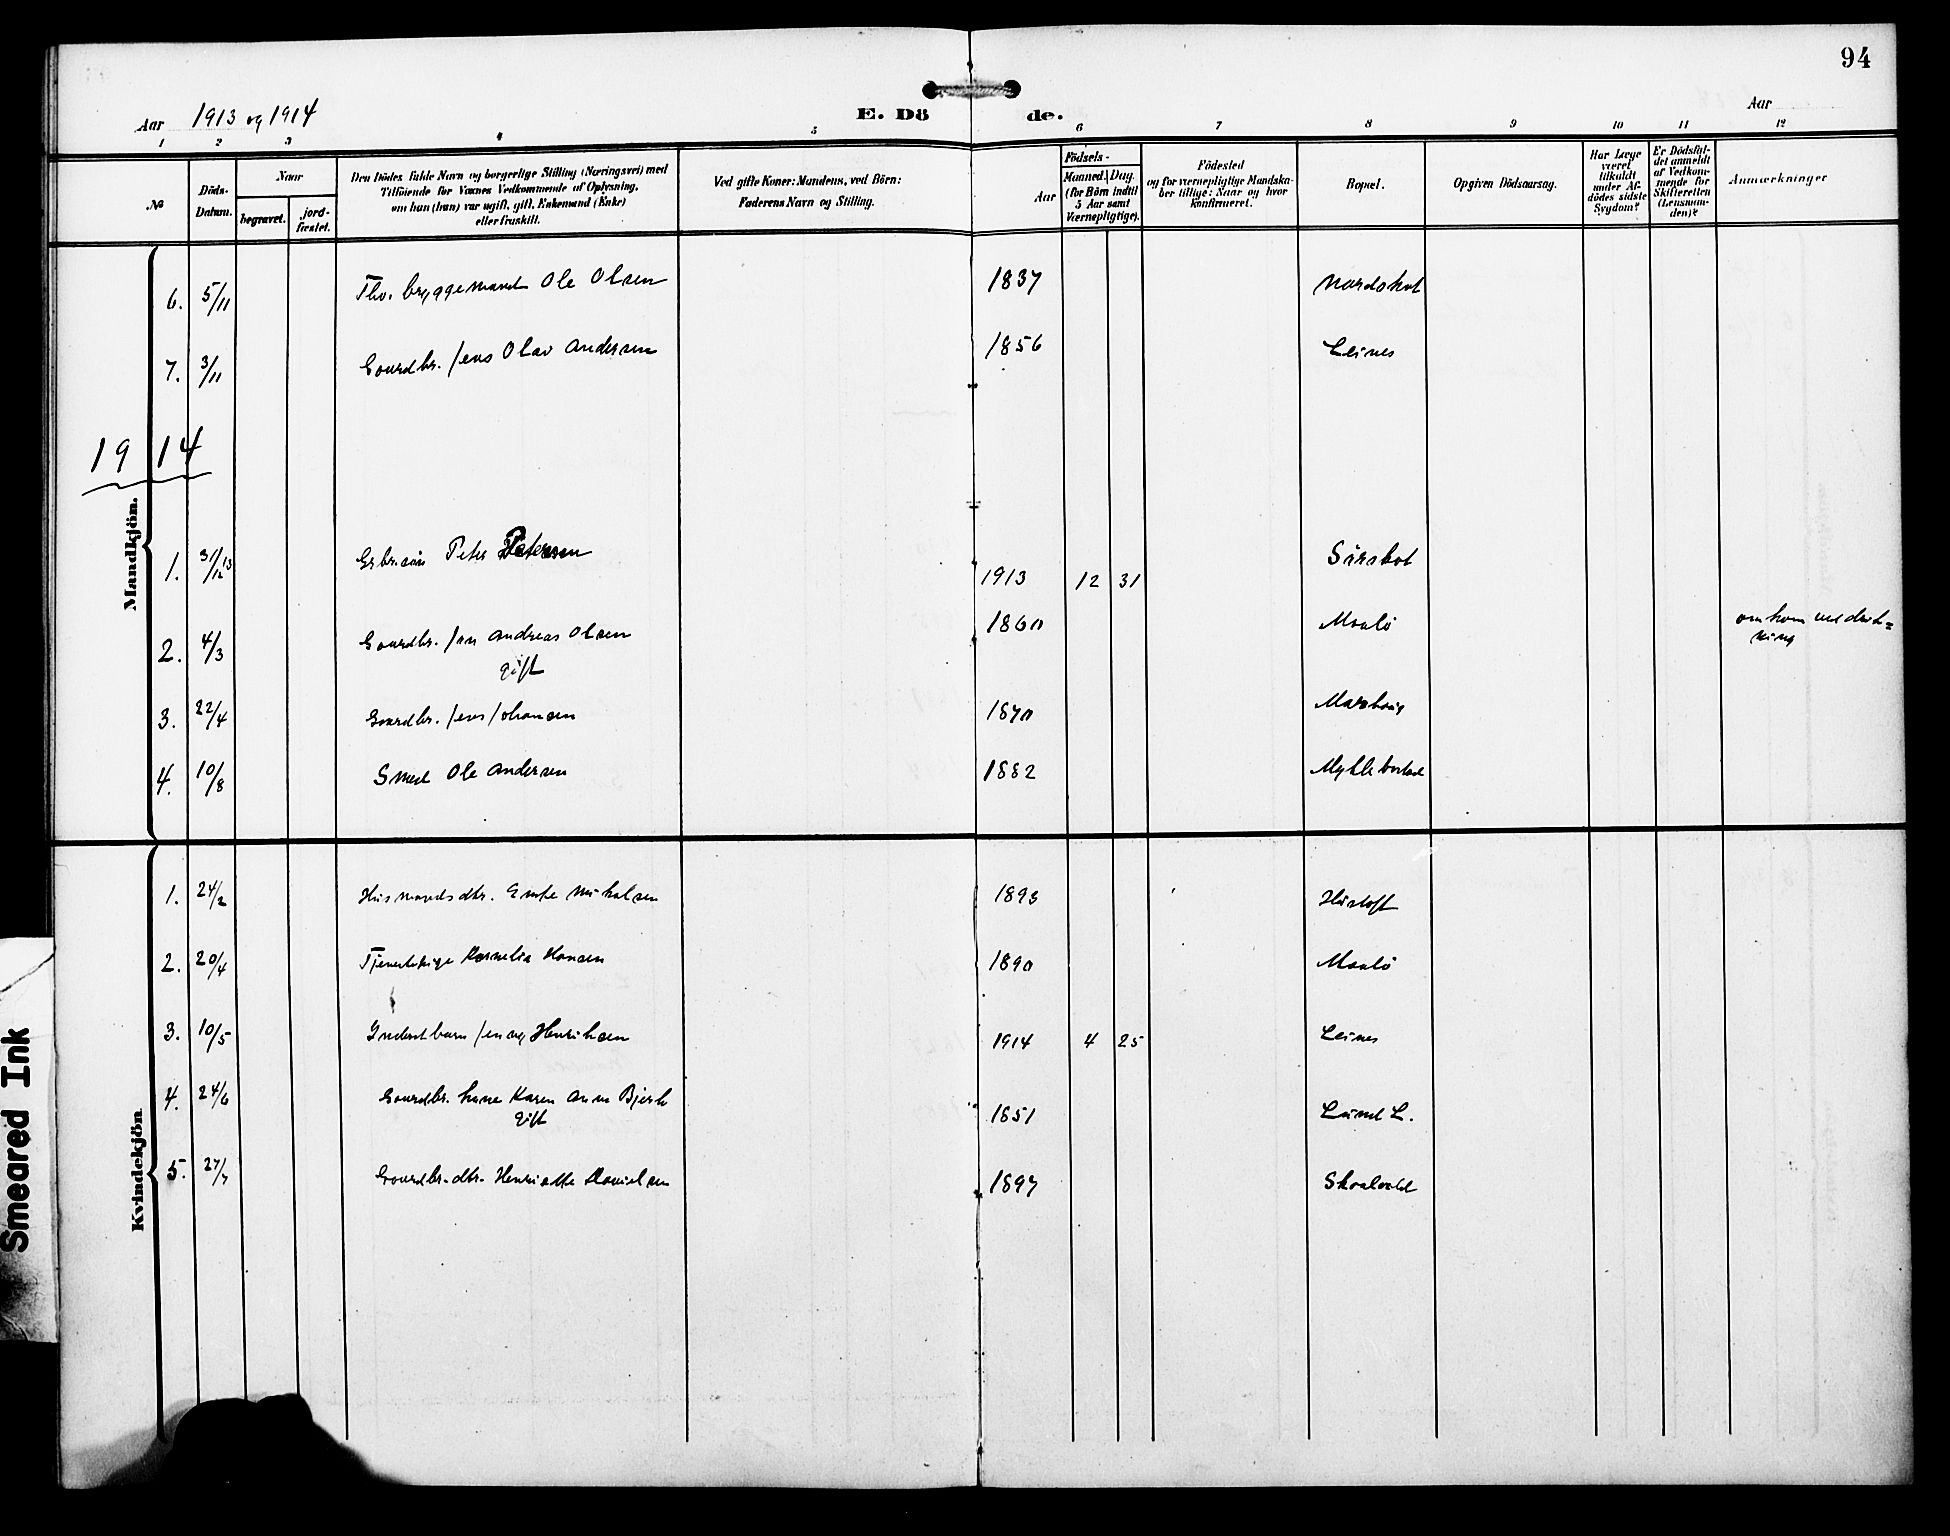 94
Aar 1913 og 1914
E. Dö de.
Aar
1 2 3 4 5 6 7 8 9 10 11 12
№
Döds-
Datum.
Naar
begravet.
jord-
fæstet.
Den Dödes fulde Navn og borgerlige Stilling (Næringsvei) med
Tilföiende for Voxnes Vedkommende af Oplysning,
om han (hun) var ugift, gift, Enkemand (Enke)
eller fraskilt.
Ved gifte Koner: Mandens, ved Börn:
Faderens Navn og Stilling.
Födsels-
Aar
Maaned. Dag.
(for Börn indtil
5 Aar samt
Værnepligtige).
Födested
og for værnepligtige Mandska-
ber tillige: Naar og hvor
konfirmeret.
Bopæl.
Opgiven Dödsaarsag.
Har Læge
været
tilkaldt
under Af-
dödes sidste
Sygdom?
Er Dödsfal-
det anmeldt
af Vedkom-
mende for
Skifteretten
(Lensman-
den)?
Anmærkninger
Mandkjön.
6. 5/11 Ole Olsen 1837 Nordskot
7. 3/11 Gaardbr. Jens Olav Andersen 1856 Leines
1914
1. 31/12 13 Peter Petersen 1913 12 31 Sörskot
2. 4/3 Gaardbr. Andreas Olsen 1860 omkom ved druk=
gift ning
3. 22/4 Gaardbr. Jens Johansen 1870
4. 10/8 Smed Ole Andersen 1882 Myklebostad
Kvindekjön.
1. 24/2 Husmandsdtr. 1893
2. 20/4 Tjenestepige Kornelia Hansen 1890
3. 10/5 Inderstbarn Jenny Henriksen 1914 4 25 Leines
4. 24/6 Gaardbr. kone Karen Anna 1851
gift
5. 27/7 Gaardbr. dtr. Henriette Danielsen 1897 Skaalvold
Smeared Ink